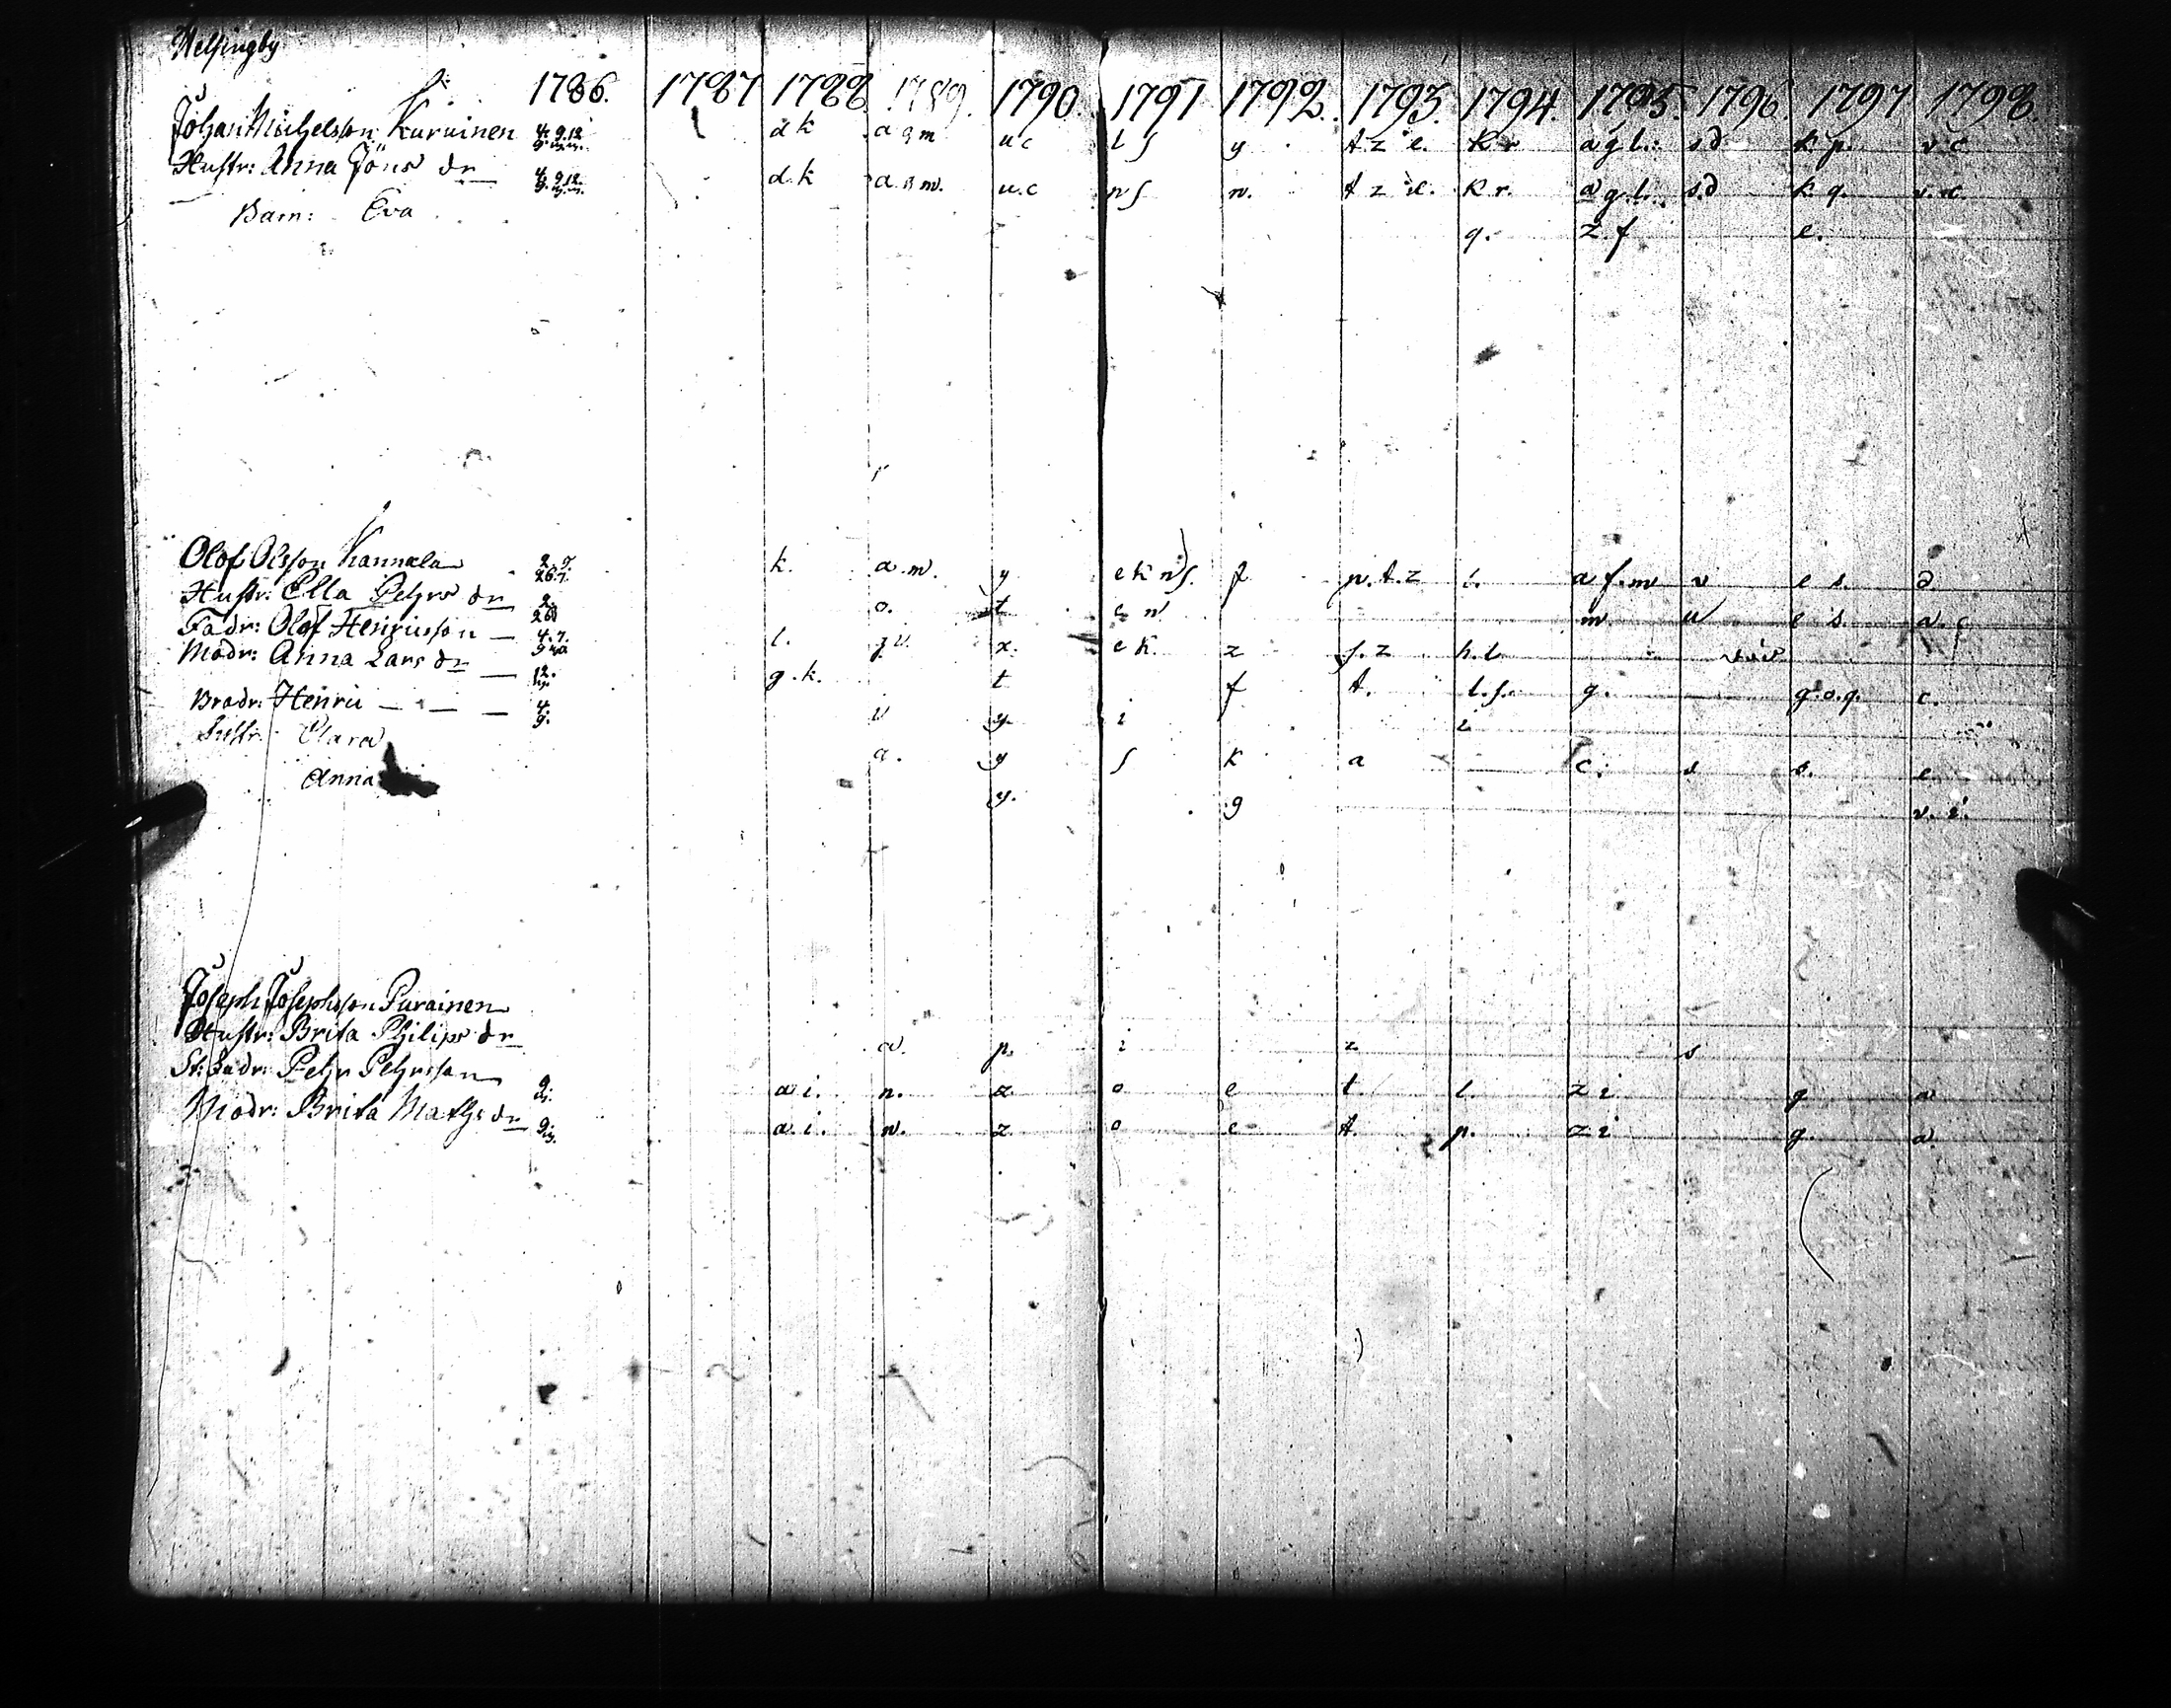 Helsingby
1786. 1787 1788 1789. 1790. 1791 1792. 1793. 1794. 1795. 1796. 1797 1798.
Johan Michelsson Kuruinen 4. 9. 12. d k a q m u c l s y t z e. k r a g l. s d k p. v c
Hustr: Anna Jöns dr 4. 9. 12. d. k a. n m. u. c n s n. t z e. k r. a g. l. s. d k. q. v. c.
Barn: Eva q. z. f e.
Olof Olsson Kannala 2. 7. 26. 7. k. a. m. y e k n s. f p. t. z l. a f. m v e s. d.
Hustr: Ella Pehrs dr 2. 26. o. t e n m u e s. a. c
Fadr: Olof Henricsson — 4. 7. l. x. e k. z f. z h. l
Modr: Anna Lars dr — 12. g. k. t f t. l. f. g. g. o. q. c.
Brodr: Henric — — — 4. 9. v y i i
Sustr: Clara a. y s k a c. s s. e
Anna y. g v. i.
Joseph Josephsson Purainen
Hustr: Brita Philips dr a. p. i z s
Pehr Pehrsson 9. a i. n. z o e t l. z i g a
Modr: Brita Maths dr 9. a. i. n. z o e t. p. z i g. a.